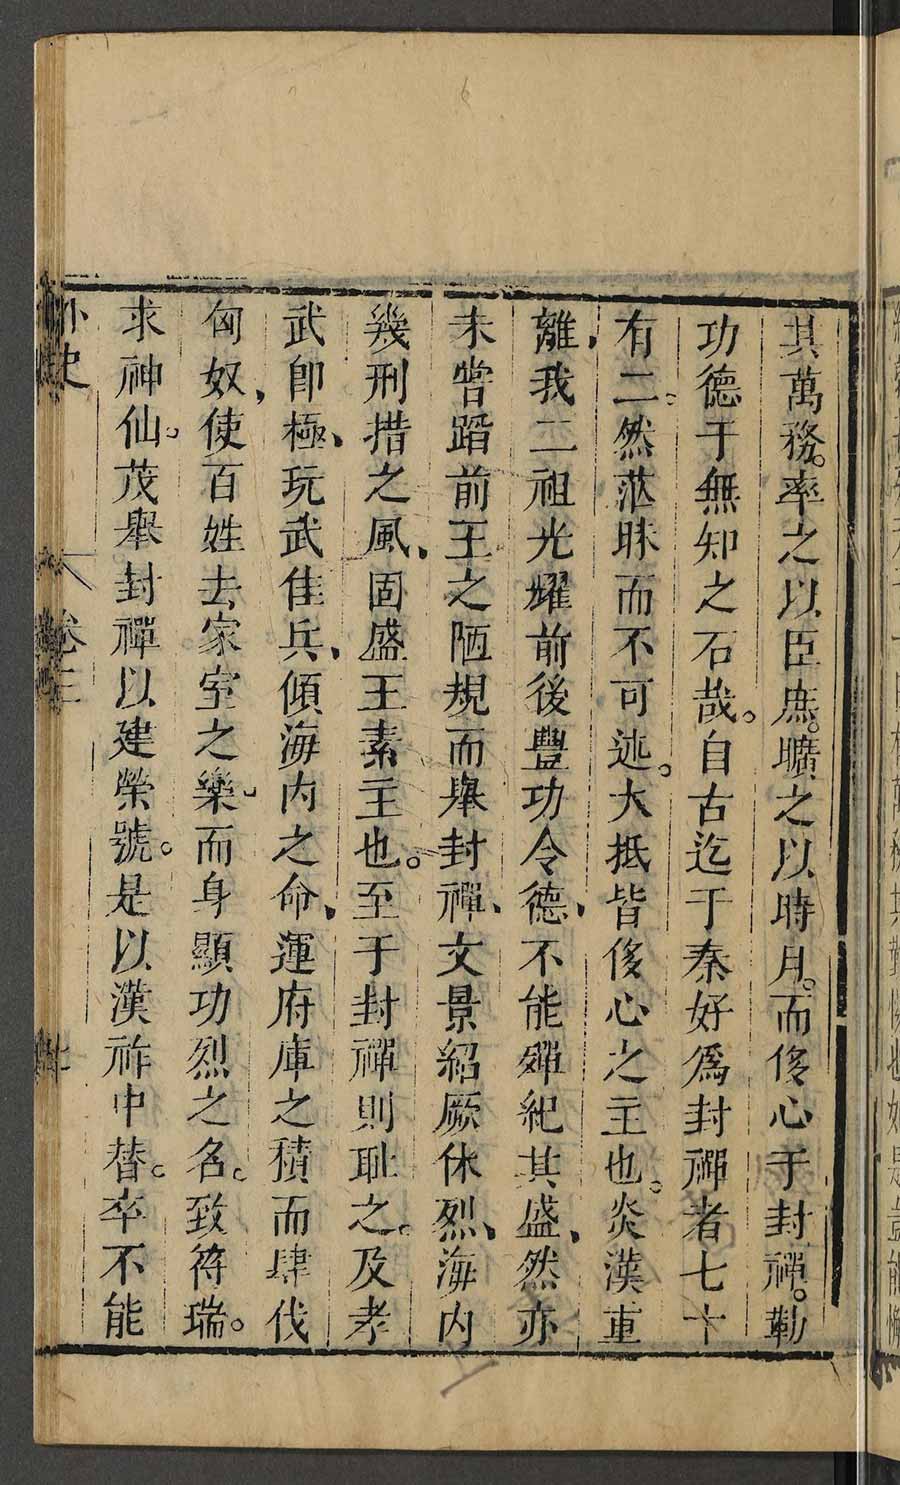 其萬務。率之以臣庶。曠之以時月。而侈心于封禪。勒
功德于無知之石哉。自古迄于秦好爲封禪者七十
有二。然茫昧而不可迹。大抵皆侈心之主也。炎漢重
離、我二祖光耀前後豐功令德、不能殫紀其盛、然亦
未嘗蹈前王之陋規而舉封禪、文景紹厥休烈、海内
幾刑措之風、固盛王素主也。至于封禪則恥之。及孝
武卽極、玩武佳兵、傾海内之命、運府庫之積而肆伐
匈奴、使百姓去家室之樂。而身顯功烈之名。致符瑞。
求神仙。茂舉封禪以建榮號。是以漢祚中替。卒不能
外史
卷三